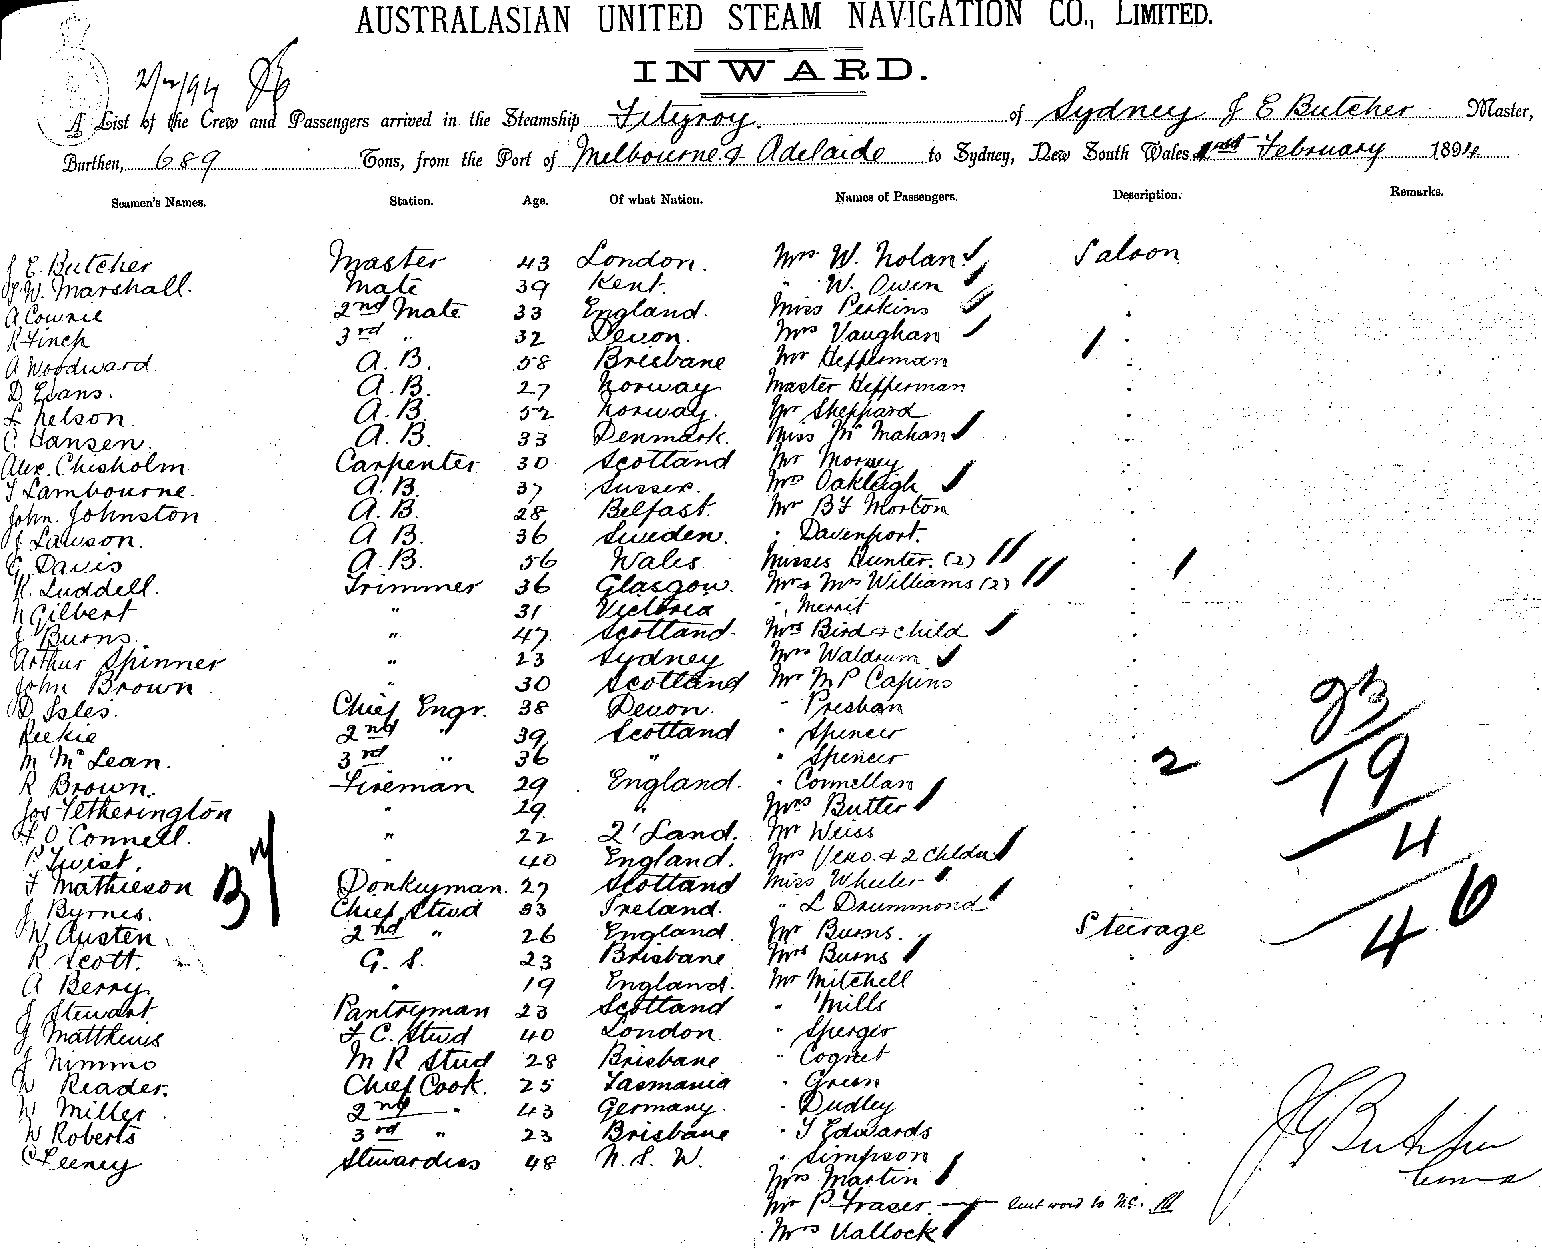 AUSTRALASIAN UNITED STEAM NAVIGATION CO., LIMITED.
INWARD.
2/2/94
A List of the Crew and Passengers arrived in the Steamship Fitzroy of Sydney J E Butcher Master,
Burthen, 689 Tons, from the Port of Melbourne & Adelaide to Sydney, New South Wales February 1894
Seamen's Names. Station. Age. Of what Nation. Names of Passengers. Description. Remarks.
J E Butcher Master 43 London. Mrs W. Nolan Saloon
W. Marshall. Mate 39 Kent. " W. Owen
A Cownie 2nd Mate 33 England. Miss Perkins
R Finch 3rd " 32 Devon. Mrs Vaughan
A Woodward A. B. 58 Brisbane Mr Hefferman
D Evans. A. B. 27 Norway Master Hefferman
L Nelson. A. B. 52 Norway. Mr Sheppard
C Hansen. A. B. 33 Denmark. Miss Mc Mahan
Alex. Chisholm Carpenter 30 Scotland Mr Morsey
T Lambourne. A. B. 37 Sussex. Mrs Oakleigh
John. Johnston A. B. 28 Belfast. Mr B F Morton
J Lawson. A. B. 36 Sweden. " Davenport.
G Davis A. B. 56 Wales Misses Hunter. (2)
K. Luddell. Trimmer 36 Glasgow. Mr & Mrs Williams (2)
N Gilbert " 31 Victoria " Merrit
J Burns. " 47 Scotland. Mrs Bird & child
Arthur Spinner " 23 Sydney Mrs Waldrum
John Brown " 30 Scotland Mr M P Capins
D Isles. Chief Engr. 38 Devon. " Preshan
Reekie 2nd " 39 Scotland " Spencer
M McLean. 3rd " 36 " " Spencer 2
R Brown. Fireman 29 England. " Connellan
Jos Tetherington " 29 " Mrs Butter
O'Connell. " 22 Z'Land. Mr Weiss
P Twist. " 40 England. Mrs & 2 Childn
T Mathieson Donkeyman. 27 Scotland Miss Wheeler
J Byrnes. Chief Stwd 33 Ireland. " L Drummond
W Austen. 2nd " 26 England Mr Burns. Steerage
R Scott. G. S. 23 Brisbane Mrs Burns
A Berry " 19 England. Mr Mitchell
J Stewart Pantryman 23 Scotland " Mills
G Matthews F. C. Stwd 40 London. " Sperger
J Nimmo M R Stwd 28 Brisbane " Cognet
W Reader. Chief Cook. 25 Tasmania " Green
W Miller. 2nd " 43 Germany. " Dudley
W Roberts 3rd " 23 Brisbane " T Edwards
C Feeney Stewardess 48 N. S. W. " Simpson
Mrs Martin
Mr P Fraser. sent word to
Mrs Vallock
23
19
4
46
J E Butcher